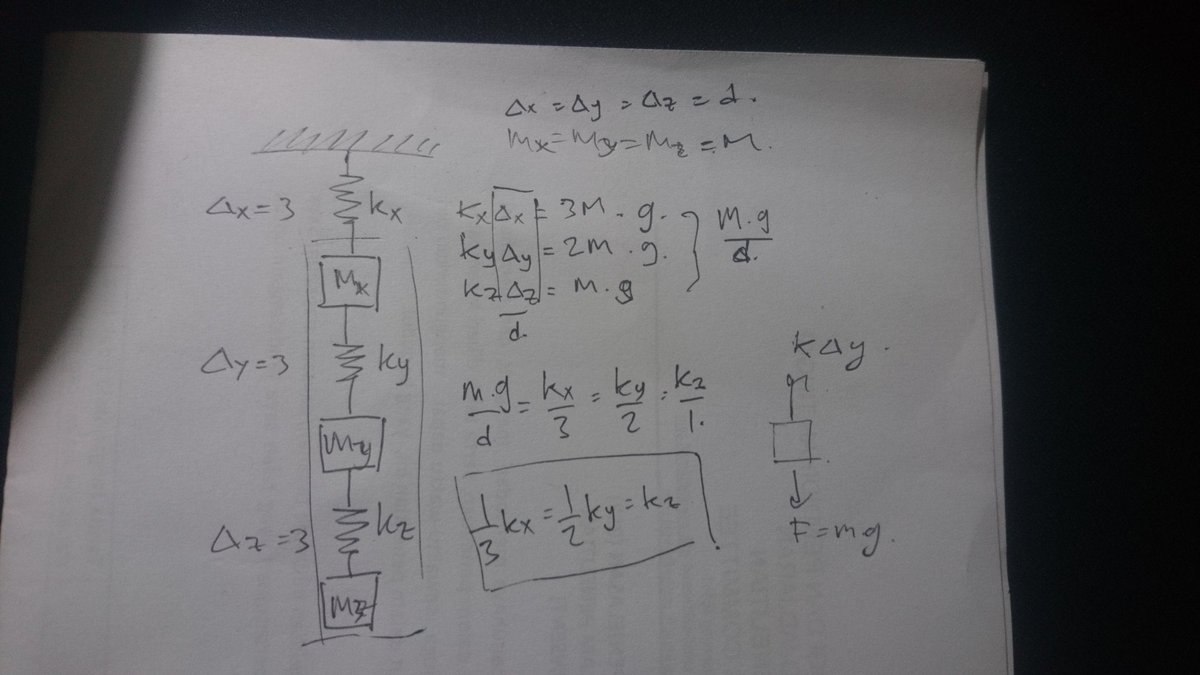 Δx = Δy = Δz = d.
Mx = My = Mz = M.
Δx = 3
kx
Mx
Δy = 3
ky
My
Δz = 3
kz
Mz
kx Δx = 3M . g.
ky Δy = 2M . g.
kz Δz = M . g
d.
M.g / d.
m.g / d = kx / 3 = ky / 2 = kz / 1.
1/3 kx = 1/2 ky = kz
kΔy.
F = mg.